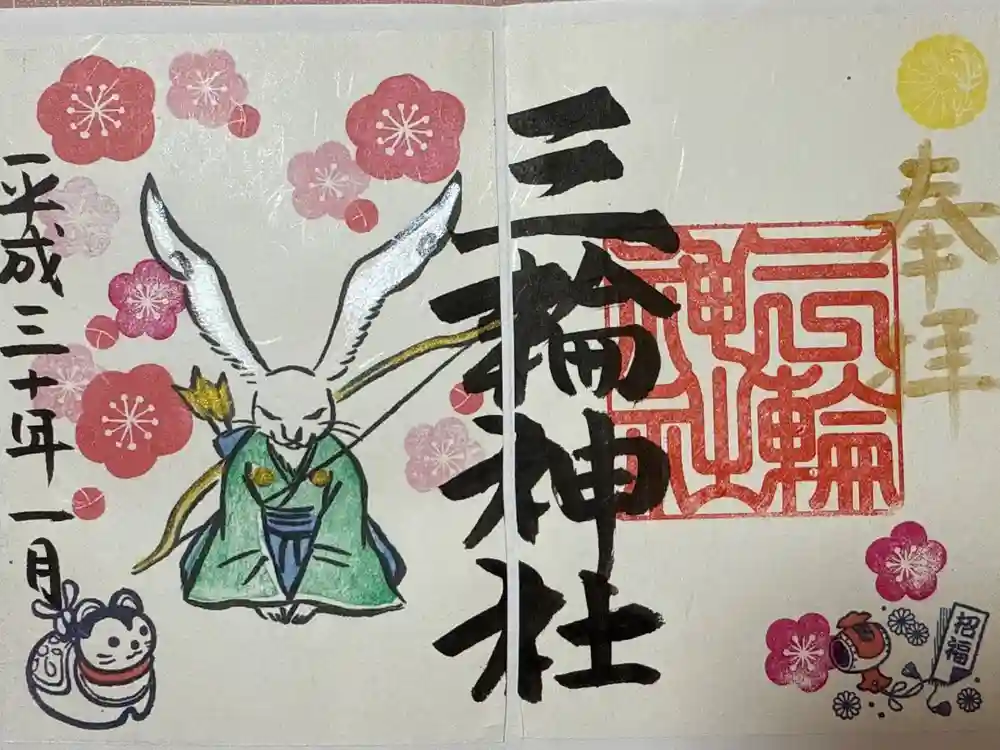 奉拝
三輪神社
三輪神社
招福
平成三十一年一月